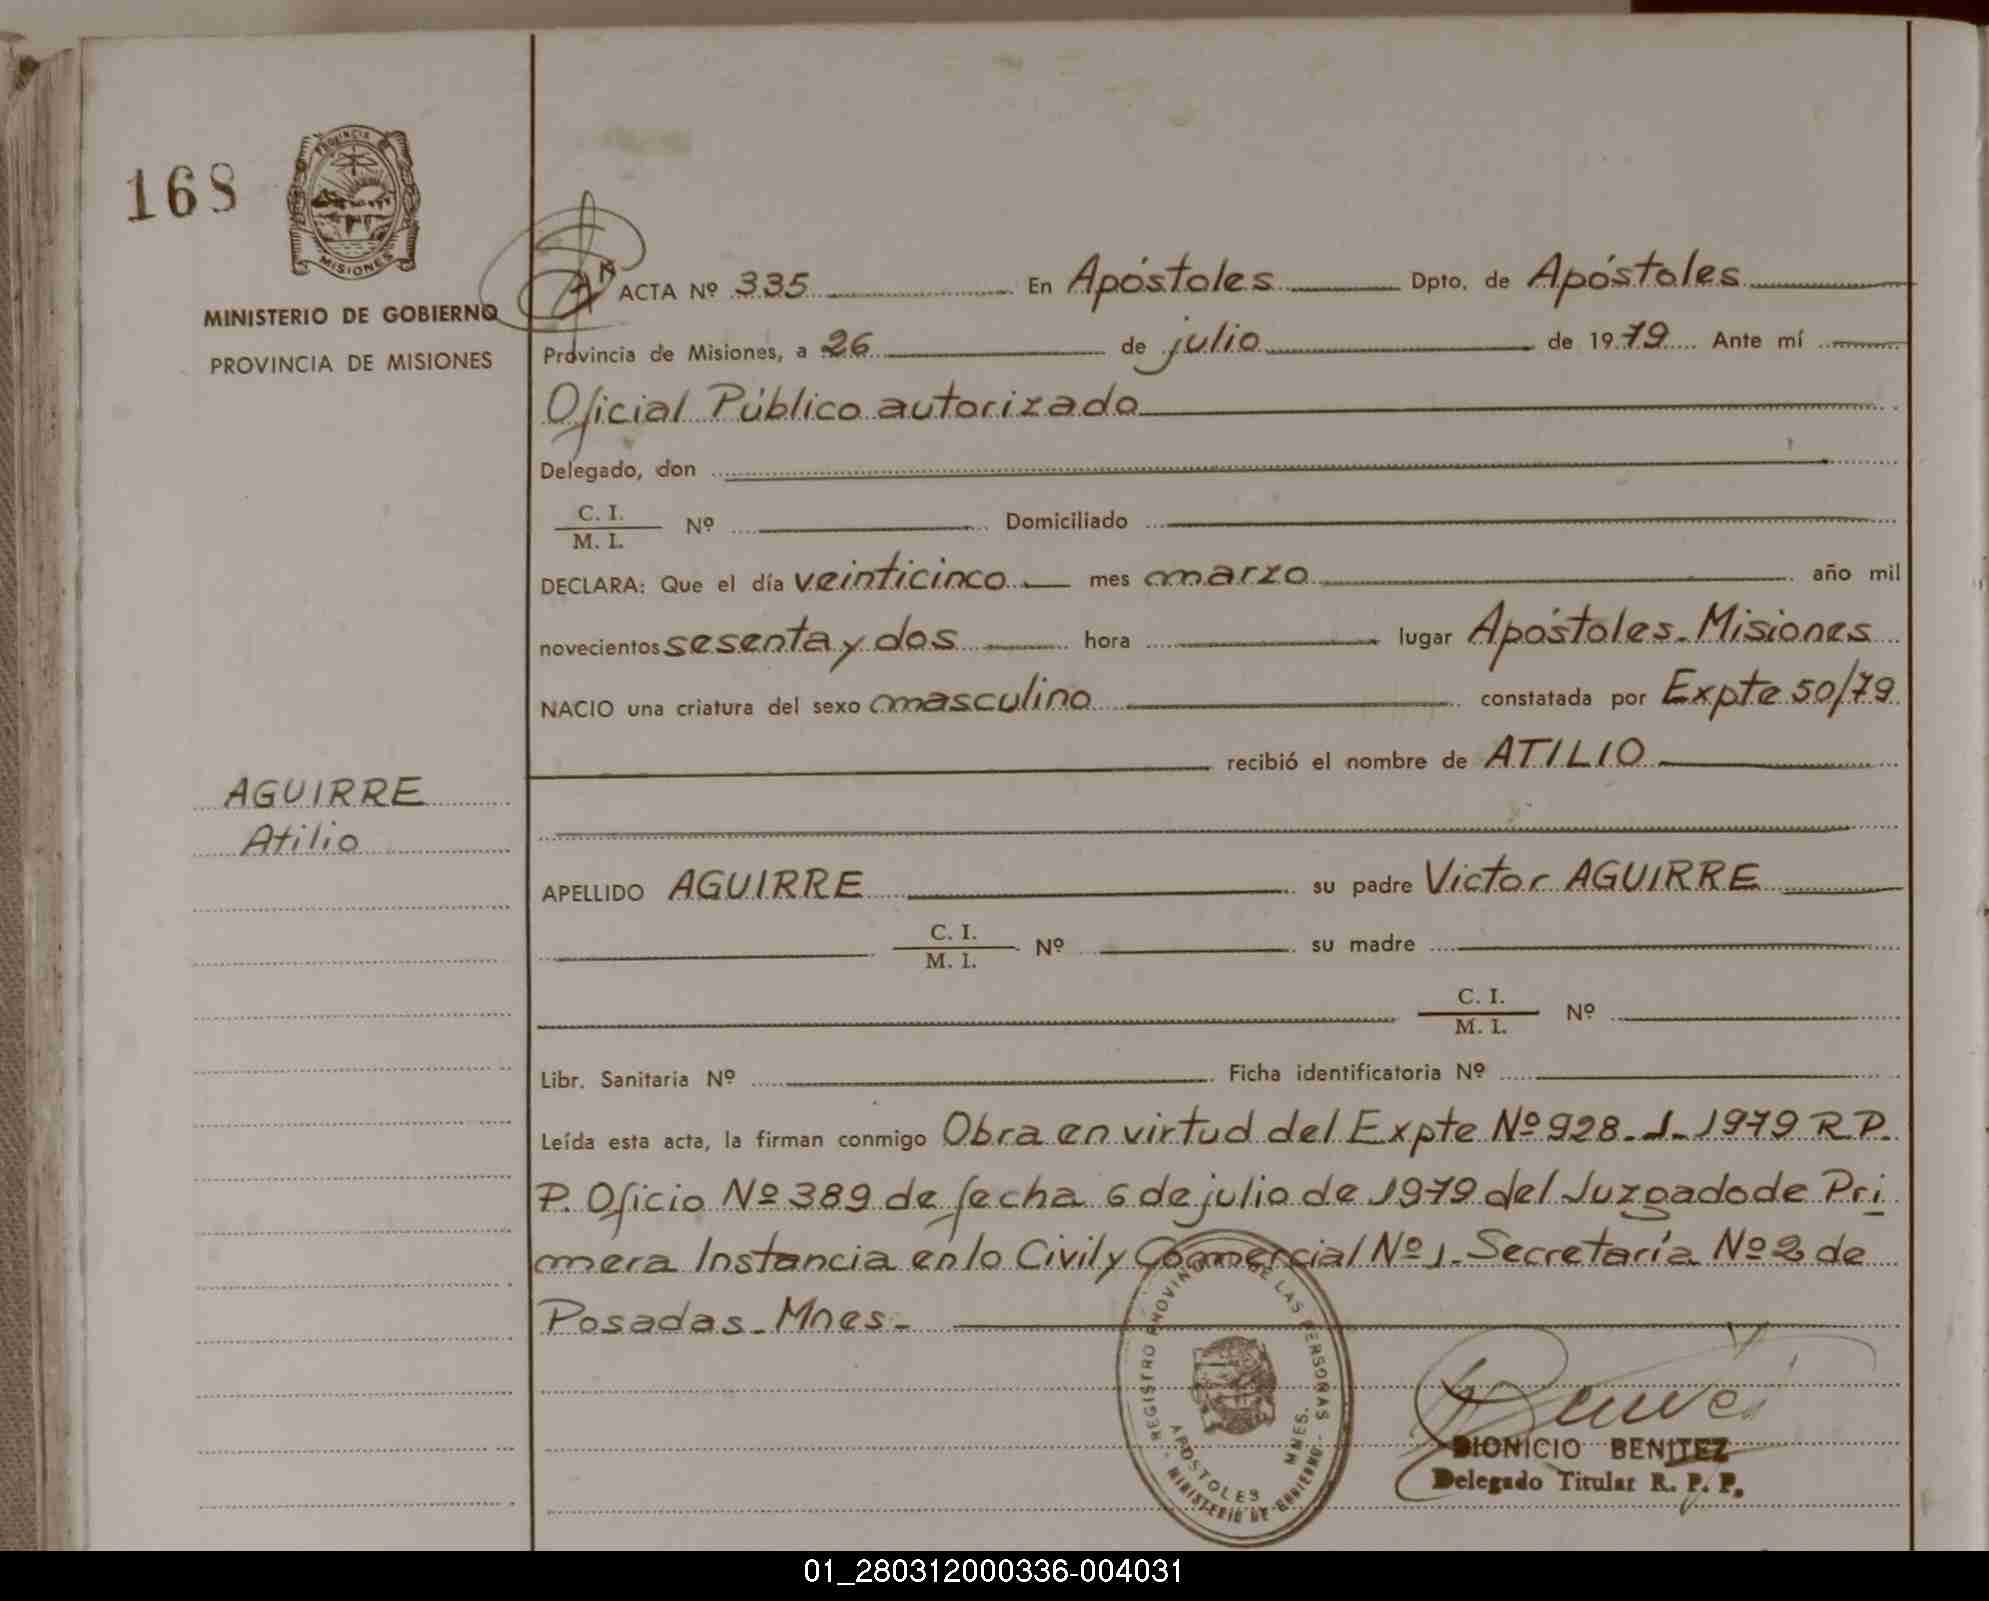 168
PROVINCIA
MISIONES
MINISTERIO DE GOBIERNO
PROVINCIA DE MISIONES
ACTA Nº 335 En Apóstoles Dpto. de Apóstoles
Provincia de Misiones, a 26 de julio de 1979 Ante mí
Oficial Público autorizado
Delegado, don
C. I.
M. I. Nº Domiciliado
DECLARA: Que el día veinticinco mes marzo año mil
novecientos sesenta y dos hora lugar Apóstoles. Misiones
NACIO una criatura del sexo masculino constatada por Expte 50/79
recibió el nombre de ATILIO
AGUIRRE
Atilio
APELLIDO AGUIRRE su padre Victor AGUIRRE
C. I.
M. I. Nº su madre
C. I.
M. I. Nº
Libr. Sanitaria Nº Ficha identificatoria Nº
Leída esta acta, la firman conmigo Obra en virtud del Expte Nº 928-1-1979 R.P.
P. Oficio Nº 389 de fecha 6 de julio de 1979 del Juzgado de Pri
mera Instancia en lo Civil y Comercial Nº 1. Secretaría Nº 2 de
Posadas. Mnes-
REGISTRO PROVINCIAL DE LAS PERSONAS
APOSTOLES MNES.
MINISTERIO DE GOBIERNO
DIONICIO BENITEZ
Delegado Titular R. P. P.
01_280312000336-004031